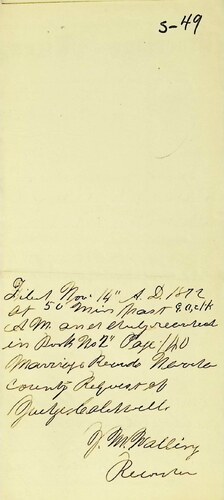 S-49
Filed Nov. 14" A.D. 1872
at 50 Min past 9 o,clk
A M. and duly recorded
in Book No "2" Page 140
Marriage Records
county Request of
Judge Caldwell
Recorder